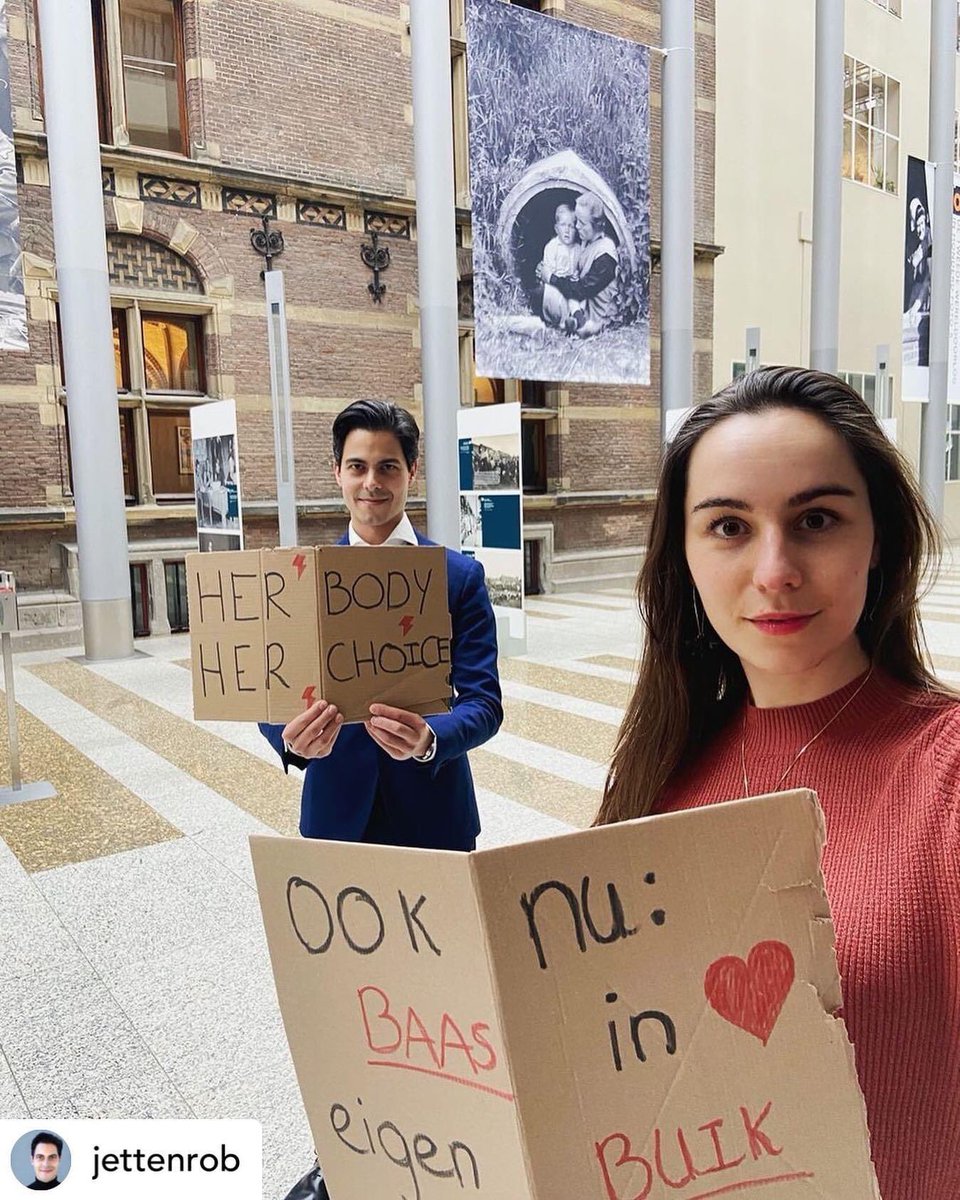 HER BODY
HER CHOICE
OOK nu:
BAAS in
eigen BUIK
jettenrob